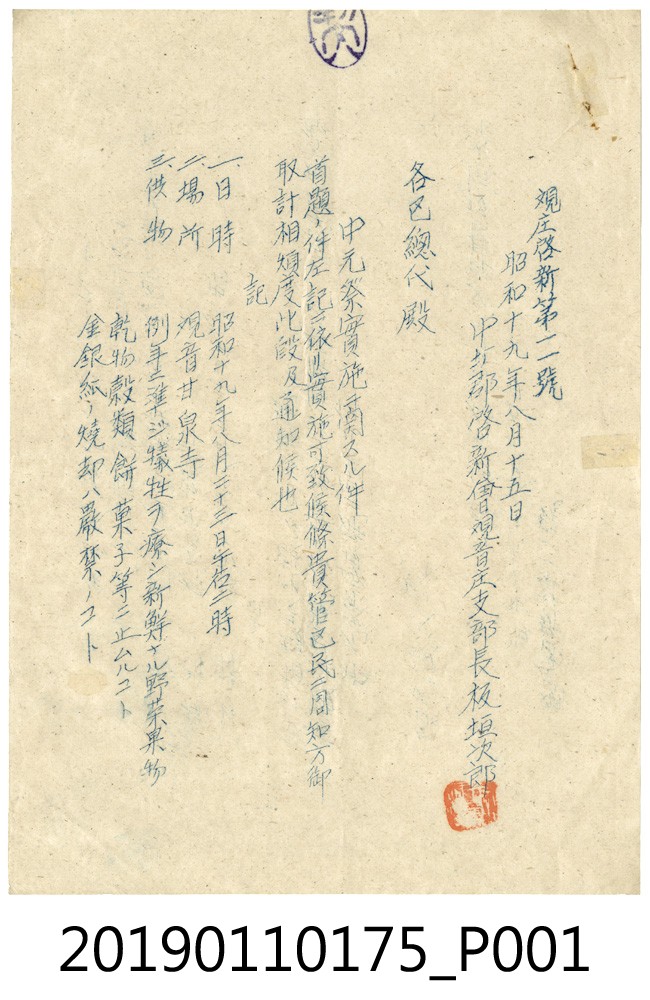 観庄啓新第二號
昭和十九年八月十五日
中壢郡啓新會観音庄支部長板垣次郎
各区總代殿
中元祭實施ニ関スル件
首題ノ件左記ニ依リ實施可致候條貴管区民ニ周知方御
取計相煩度此段及通知候也
記
一、日時 昭和十九年八月二十三日午后二時
二、場所 観音甘泉寺
三、供物 例年ニ準ジ犠牲ヲ療シ新鮮ナル野菜果物
乾物穀類餅菓子等ニ止ムルコト
金銀紙ノ燒却ハ嚴禁ノコト
20190110175_P001